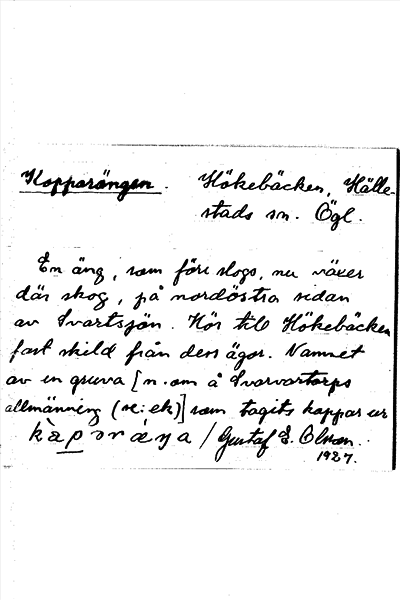 Kopparängen. Hökebäcken, Hälle-
stads sn. Ögl.
En äng, som förr slogs, nu växer
där skog, på nordöstra sidan
av Svartsjön. Hör till Hökebäcken
fast skild från dess ägor. Namnet
av en gruva [n. om å Svarvartorps
allmänning (se: ek)] som tagits koppar ur
kàpəræŋa / Gustaf E. Olsson.
1927.